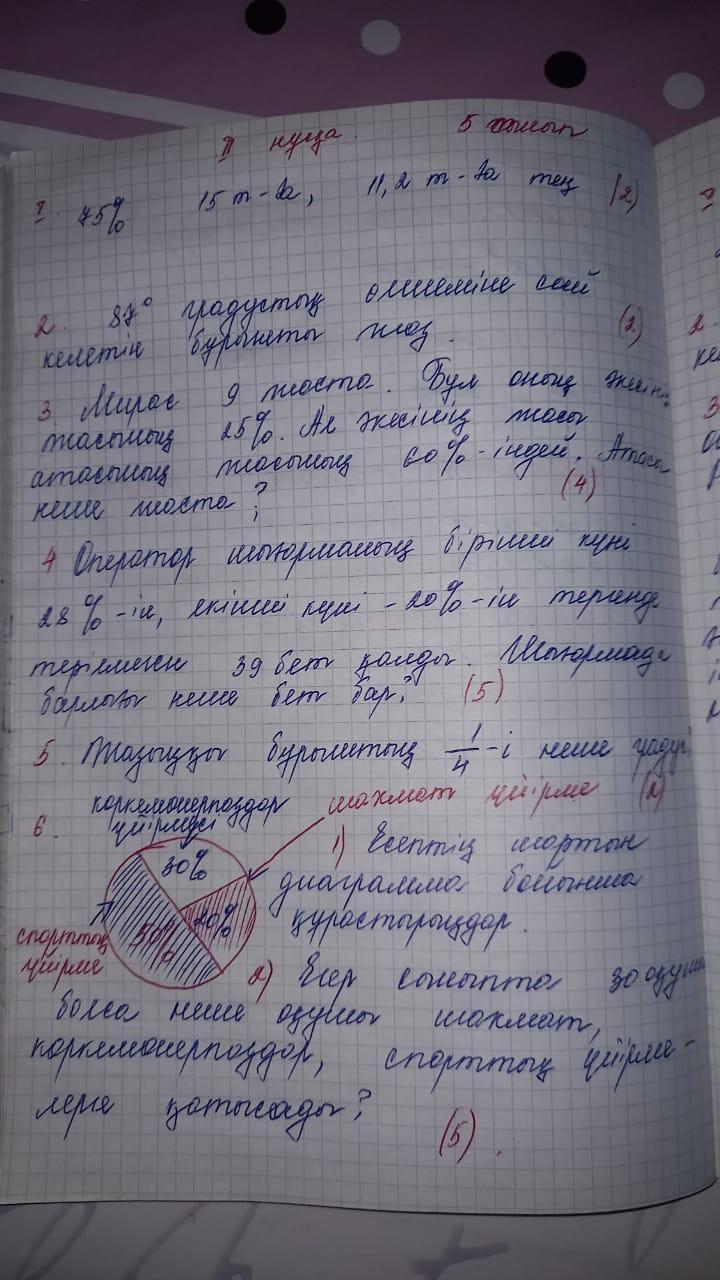 II нұсқа. 5 сынып
1. 75% 15 т-ға, 11,2 т-ға тең (2)
2. 87° градустың өлшеміне сай (2)
келетін бұрышты жаз.
3. Мирас 9 жаста. Бұл оның әкесінің
жасының 25%. Ал әкесінің жасы
атасының жасының 60%-індей. Атасы
неше жаста? (4)
4 Оператор шығарманың бірінші күні
28%-ін, екінші күні - 20%-ін тергенде
терілмеген 39 бет қалды. Шығармада
барлығы неше бет бар? (5)
5. Жазыңқы бұрыштың 1/4-і неше градус? (2)
6. көркемөнерпаздар үйірмесі
шахмат үйірме
30%
20%
50%
спорттық үйірме
1) Есептің шартын
диаграмма бойынша
құрастырыңдар.
2) Егер сыныпта 30 оқушы
болса неше оқушы шахмат,
көркемөнерпаздар, спорттық үйірме-
лерге қатысады?
(5).